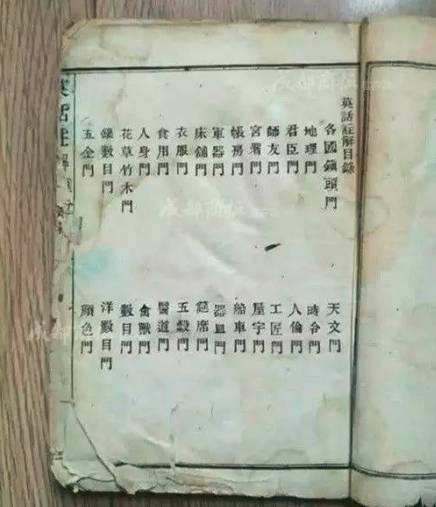 英話註解目錄
各國鎮頭門
天文門
地理門
時令門
君臣門
人倫門
師友門
工匠門
宮署門
屋宇門
帳房門
船車門
軍器門
器皿門
床舖門
筵席門
衣服門
五穀門
食用門
醫道門
人身門
禽獸門
花草竹木門
數目門
銀數目門
洋數目門
五金門
顔色門
成都商报